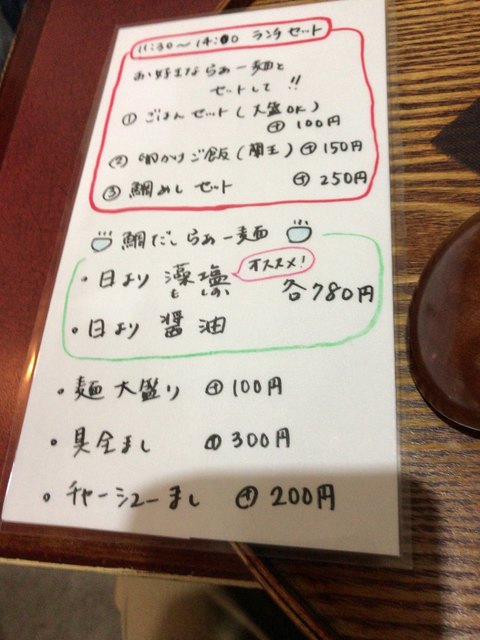 11:30～14:00 ランチセット
お好きならぁー麺と
セットして!!
① ごはんセット(大盛OK)
⊕100円
② 卵かけご飯(蘭王) ⊕150円
③ 鯛めしセット ⊕250円
鯛だしらぁー麺
・日より 藻塩 オススメ!
もしお
各780円
・日より 醤油
・麺大盛り ⊕100円
・具全まし ⊕300円
・チャーシューまし ⊕200円